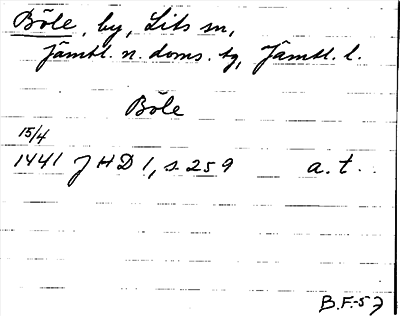 Böle, by, Lits sn,
Jämtl. n. doms. tg, Jämtl. l.
Böle
15/4
1441 JHD 1, s 259 a.t.
B.F.-57